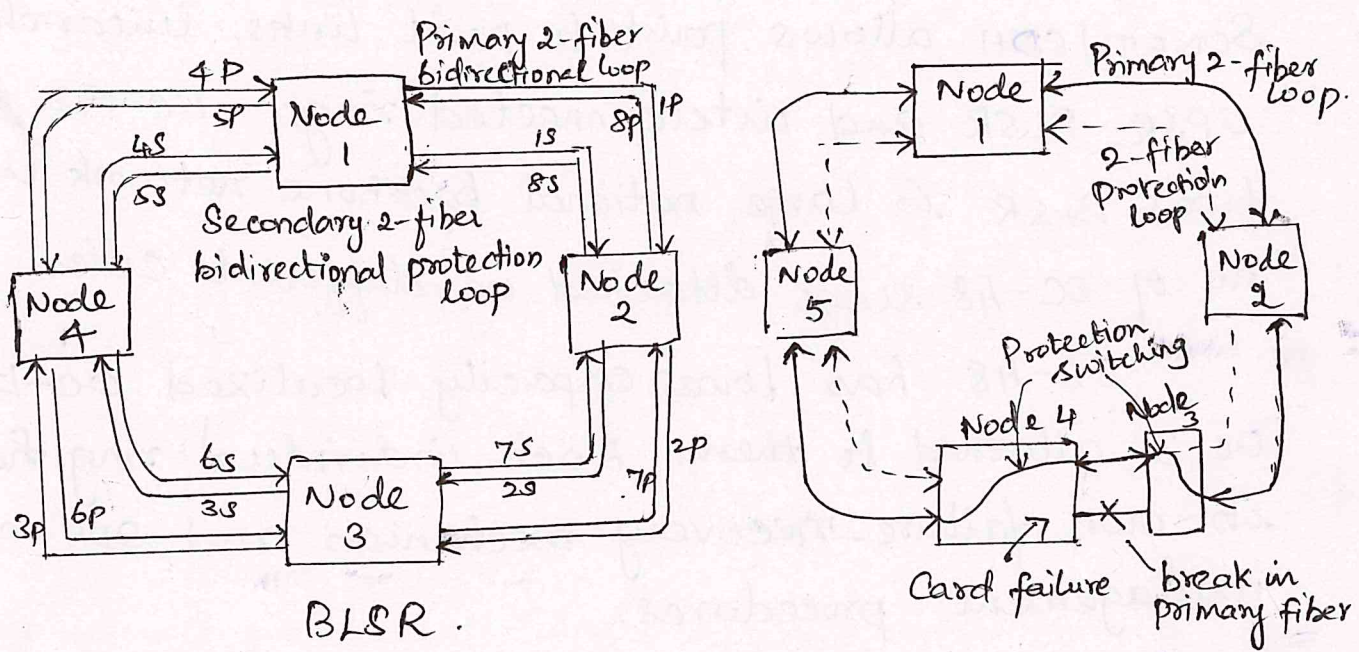 Primary 2-fiber
bidirectional loop
4P
5P
Node
1
1P
8P
4S
5S
1S
8S
Secondary 2-fiber
bidirectional protection
loop
Node
4
Node
2
3P
6P
6S
3S
Node
3
7S
2S
7P
2P
BLSR.
Node
1
Primary 2-fiber
loop.
2-fiber
protection
loop
Node
5
Node
2
Protection
switching
Node 4
Node
3
Card failure
break in
primary fiber